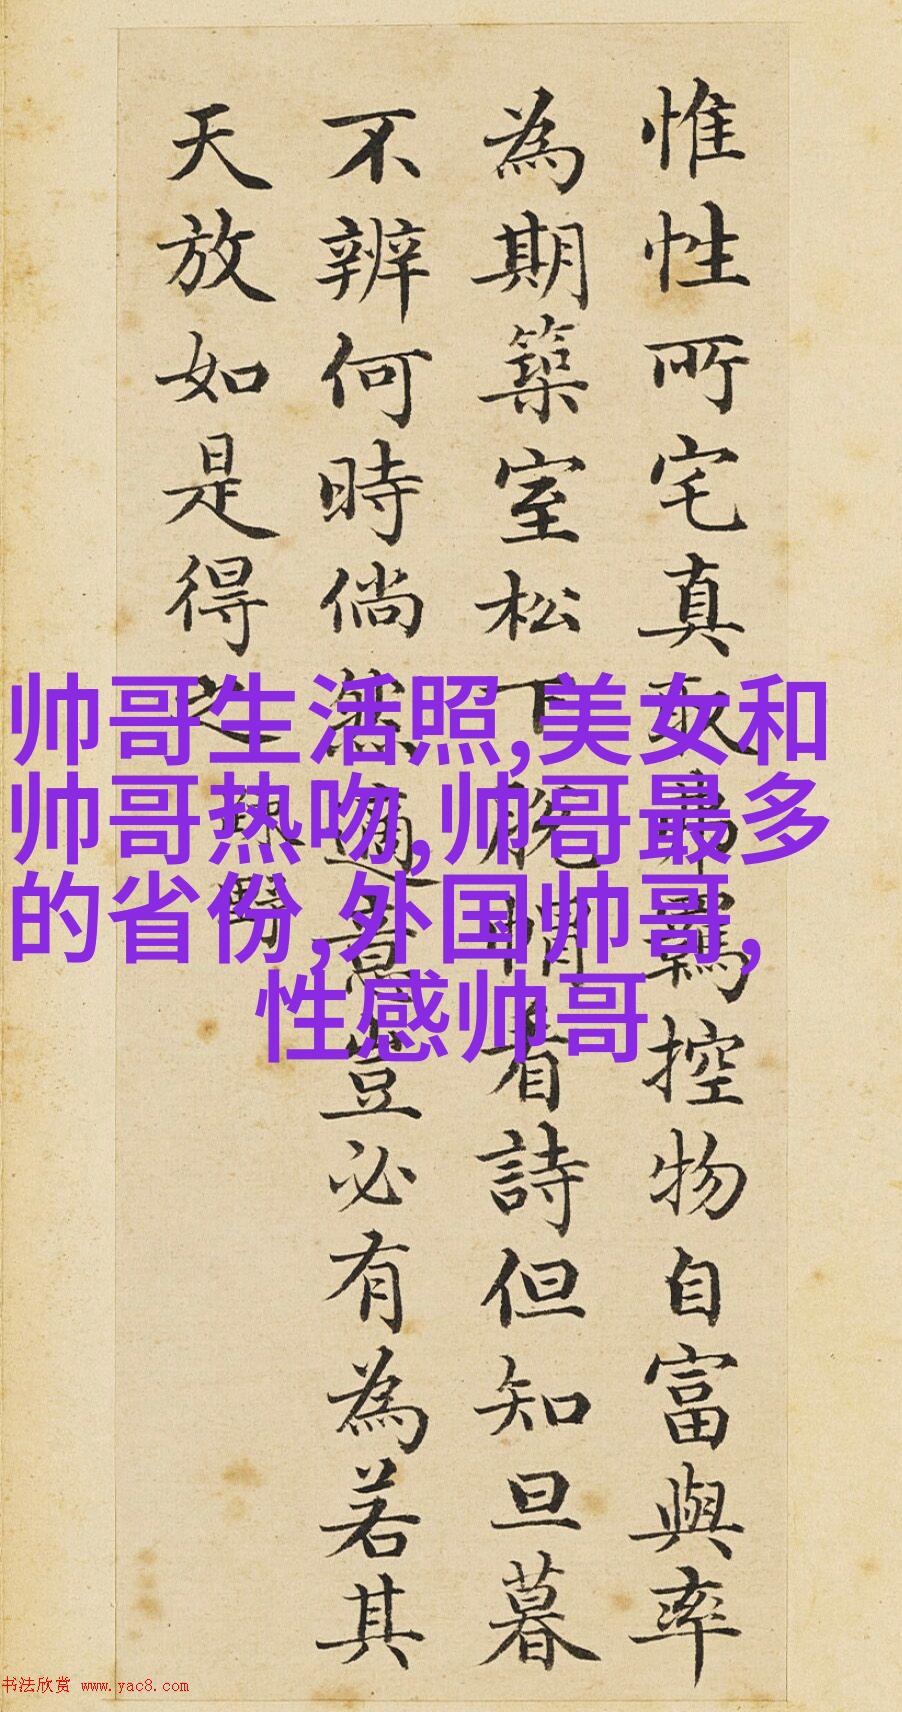 惟性所宅真取弗羈控物自富與率
為期築室松下脫帽看詩但知旦暮
不辨何時倘然適意豈必有為若其
天放如是得之
疎野
帅哥生活照,美女和
帅哥热吻,帅哥最多
的省份,外国帅哥,
性感帅哥
书法欣赏 www.yac8.com